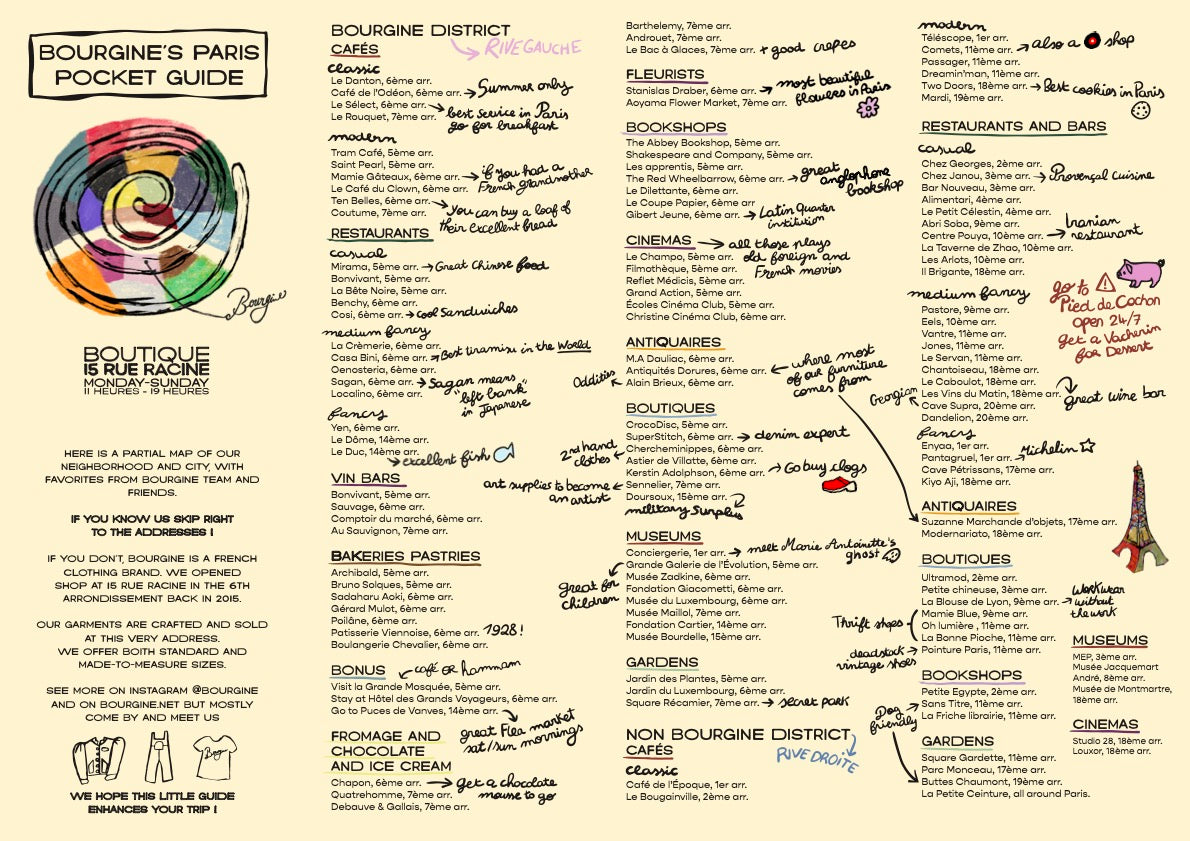 BOURGINE'S PARIS
POCKET GUIDE
Bourgine
BOUTIQUE
15 RUE RACINE
MONDAY-SUNDAY
11 HEURES - 19 HEURES
HERE IS A PARTIAL MAP OF OUR
NEIGHBORHOOD AND CITY, WITH
FAVORITES FROM BOURGINE TEAM AND
FRIENDS.
IF YOU KNOW US SKIP RIGHT
TO THE ADDRESSES !
IF YOU DON'T, BOURGINE IS A FRENCH
CLOTHING BRAND. WE OPENED
SHOP AT 15 RUE RACINE IN THE 6TH
ARRONDISSEMENT BACK IN 2015.
OUR GARMENTS ARE CRAFTED AND SOLD
AT THIS VERY ADDRESS.
WE OFFER BOITH STANDARD AND
MADE-TO-MEASURE SIZES.
SEE MORE ON INSTAGRAM @BOURGINE
AND ON BOURGINE.NET BUT MOSTLY
COME BY AND MEET US
WE HOPE THIS LITTLE GUIDE
ENHANCES YOUR TRIP !
BOURGINE DISTRICT
RIVE GAUCHE
CAFÉS
classic
Le Danton, 6ème arr.
Café de l'Odéon, 6ème arr. → Summer only
Le Sélect, 6ème arr. → best service in Paris
Le Rouquet, 7ème arr. go for breakfast
modern
Tram Café, 5ème arr.
Saint Pearl, 5ème arr.
Mamie Gâteaux, 6ème arr. → if you had a
Le Café du Clown, 6ème arr. French grandmother
Ten Belles, 6ème arr. → you can buy a loaf of
Coutume, 7ème arr. their excellent bread
RESTAURANTS
casual
Mirama, 5ème arr. → Great Chinese food
Bonvivant, 5ème arr.
La Bête Noire, 5ème arr.
Benchy, 6ème arr.
Cosi, 6ème arr. → cool Sandwiches
medium fancy
La Crèmerie, 6ème arr.
Casa Bini, 6ème arr. → Best tiramisu in the World
Oenosteria, 6ème arr.
Sagan, 6ème arr. → Sagan means
Localino, 6ème arr. "left bank"
in Japanese
fancy
Yen, 6ème arr.
Le Dôme, 14ème arr.
Le Duc, 14ème arr.
→ excellent fish
VIN BARS
Bonvivant, 5ème arr.
Sauvage, 6ème arr.
Comptoir du marché, 6ème arr.
Au Sauvignon, 7ème arr.
BAKERIES PASTRIES
Archibald, 5ème arr.
Bruno Solques, 5ème arr.
Sadaharu Aoki, 6ème arr.
Gérard Mulot, 6ème arr.
Poilâne, 6ème arr.
Patisserie Viennoise, 6ème arr. 1928!
Boulangerie Chevalier, 6ème arr.
BONUS ← café or hammam
Visit la Grande Mosquée, 5ème arr.
Stay at Hôtel des Grands Voyageurs, 6ème arr.
Go to Puces de Vanves, 14ème arr.
great Flea market
sat/sun mornings
FROMAGE AND
CHOCOLATE
AND ICE CREAM
Chapon, 6ème arr. → get a chocolate
Quatrehomme, 7ème arr. mousse to go
Debauve & Gallais, 7ème arr.
Barthelemy, 7ème arr.
Androuet, 7ème arr.
Le Bac à Glaces, 7ème arr. + good crepes
FLEURISTS
Stanislas Draber, 6ème arr. → most beautiful
Aoyama Flower Market, 7ème arr. flowers in Paris
BOOKSHOPS
The Abbey Bookshop, 5ème arr.
Shakespeare and Company, 5ème arr.
Les apprentis, 5ème arr.
The Red Wheelbarrow, 6ème arr. → great
Le Dilettante, 6ème arr. anglophone
bookshop
Le Coupe Papier, 6ème arr
Gibert Jeune, 6ème arr. → Latin Quarter
institution
CINEMAS → all those plays
Le Champo, 5ème arr. old foreign and
Filmothèque, 5ème arr. French movies
Reflet Médicis, 5ème arr.
Grand Action, 5ème arr.
Écoles Cinéma Club, 5ème arr.
Christine Cinéma Club, 6ème arr.
ANTIQUAIRES
M.A Dauliac, 6ème arr. where most
Antiquités Dorures, 6ème arr. ← of our furniture
comes from
Oddities ← Alain Brieux, 6ème arr.
BOUTIQUES
CrocoDisc, 5ème arr.
SuperStitch, 6ème arr. → denim expert
2nd hand clothes ← Chercheminippes, 6ème arr.
Astier de Villatte, 6ème arr.
Kerstin Adolphson, 6ème arr. → Go buy clogs
art supplies to become an artist ← Sennelier, 7ème arr.
Doursoux, 15ème arr.
military Surplus
MUSEUMS
Conciergerie, 1er arr. → meet Marie Antoinette's
ghost
Grande Galerie de l'Évolution, 5ème arr.
great for
children
Musée Zadkine, 6ème arr.
Fondation Giacometti, 6ème arr.
Musée du Luxembourg, 6ème arr.
Musée Maillol, 7ème arr.
Fondation Cartier, 14ème arr.
Musée Bourdelle, 15ème arr.
GARDENS
Jardin des Plantes, 5ème arr.
Jardin du Luxembourg, 6ème arr.
Square Récamier, 7ème arr. → secret park
NON BOURGINE DISTRICT
RIVE DROITE
CAFÉS
classic
Café de l'Époque, 1er arr.
Le Bougainville, 2ème arr.
modern
Téléscope, 1er arr.
Comets, 11ème arr. → also a shop
Passager, 11ème arr.
Dreamin'man, 11ème arr.
Two Doors, 18ème arr. → Best cookies in Paris
Mardi, 19ème arr.
RESTAURANTS AND BARS
casual
Chez Georges, 2ème arr.
Chez Janou, 3ème arr. → Provençal cuisine
Bar Nouveau, 3ème arr.
Alimentari, 4ème arr.
Le Petit Célestin, 4ème arr.
Abri Soba, 9ème arr. Iranian
Centre Pouya, 10ème arr. → restaurant
La Taverne de Zhao, 10ème arr.
Les Arlots, 10ème arr.
Il Brigante, 18ème arr.
go to
Pied de Cochon
open 24/7
get a Vacherin
for Dessert
medium fancy
Pastore, 9ème arr.
Eels, 10ème arr.
Vantre, 11ème arr.
Jones, 11ème arr.
Le Servan, 11ème arr.
Chantoiseau, 18ème arr.
Le Caboulot, 18ème arr.
Les Vins du Matin, 18ème arr. great wine bar
Georgian
Cave Supra, 20ème arr.
Dandelion, 20ème arr.
fancy
Enyaa, 1er arr.
Pantagruel, 1er arr. → Michelin
Cave Pétrissans, 17ème arr.
Kiyo Aji, 18ème arr.
ANTIQUAIRES
Suzanne Marchande d'objets, 17ème arr.
Modernariato, 18ème arr.
BOUTIQUES
Ultramod, 2ème arr.
Petite chineuse, 3ème arr.
La Blouse de Lyon, 9ème arr. → Workwear
without
the work
Thrift shops
Mamie Blue, 9ème arr.
Oh lumière , 11ème arr.
La Bonne Pioche, 11ème arr.
deadstock vintage shoes → Pointure Paris, 11ème arr.
BOOKSHOPS
Petite Egypte, 2ème arr.
Dog
friendly
Sans Titre, 11ème arr.
La Friche librairie, 11ème arr.
GARDENS
Square Gardette, 11ème arr.
Parc Monceau, 17ème arr.
Buttes Chaumont, 19ème arr.
La Petite Ceinture, all around Paris.
MUSEUMS
MEP, 3ème arr.
Musée Jacquemart
André, 8ème arr.
Musée de Montmartre,
18ème arr.
CINEMAS
Studio 28, 18ème arr.
Louxor, 18ème arr.